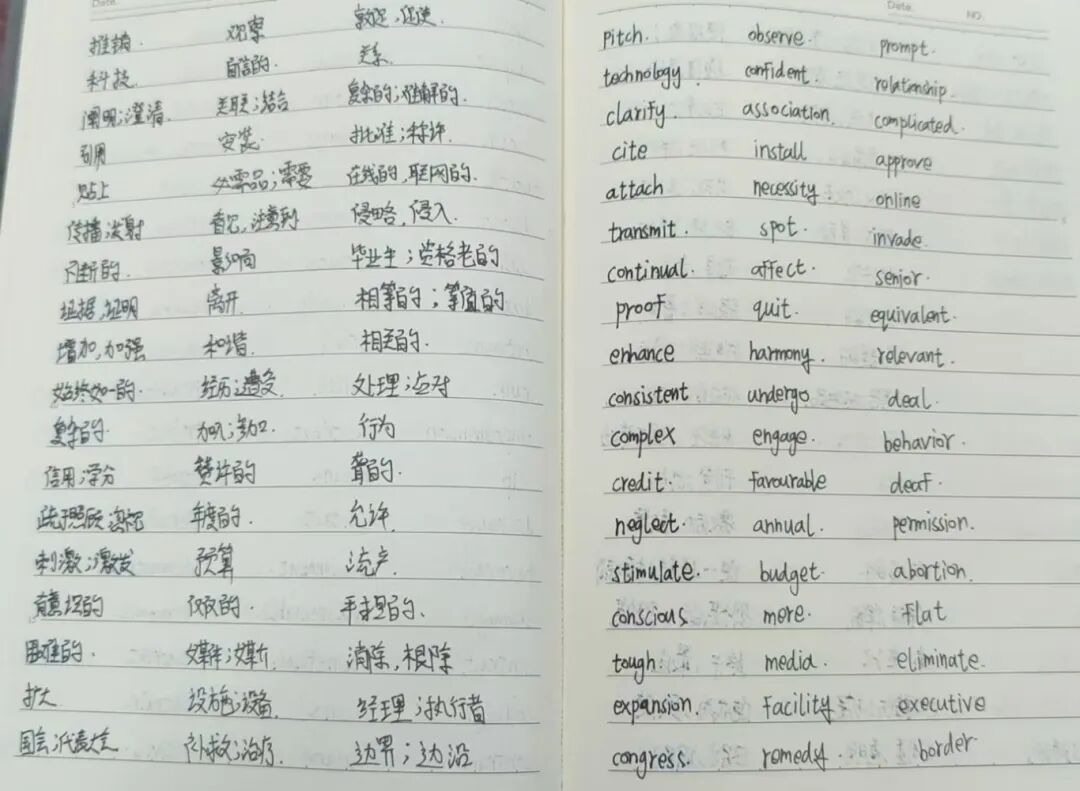 Date.
推销. 观察 敦促,促使
科技. 自信的. 关系.
阐明;澄清. 关联;结合 复杂的;难解的.
引用 安装. 批准;特许.
贴上 必需品;需要 在线的,联网的.
传播;发射 看见,注意到 侵略,侵入.
不断的. 影响 毕业生;资格老的
证据,证明 离开 相等的;等值的
增加,加强 和谐. 相关的.
始终如一的 经历;遭受 处理;应对
复杂的. 加入; 行为
信用;学分 赞许的 聋的.
疏于照顾; 年度的. 允许.
刺激;激发 预算 流产.
有意识的 仅仅的. 平坦的.
困难的. 媒体;媒介 消除,根除
扩大 设施;设备. 经理;执行者
国会;代表大会 补救;治疗. 边界;边沿
Date. NO.
pitch. observe. prompt.
technology. confident. relationship.
clarify. association. complicated.
cite install approve
attach necessity online
transmit. spot. invade.
continual. affect. senior.
proof quit. equivalent.
enhance harmony. relevant.
consistent undergo deal.
complex engage. behavior.
credit. favourable deaf.
neglect. annual. permission.
stimulate. budget. abortion.
conscious. mere. flat
tough. media. eliminate.
expansion. facility executive
congress. remedy. border.